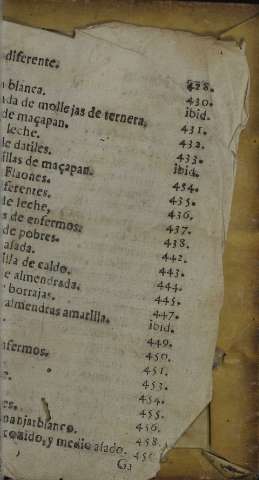 diferente. 428.
blanca. 430.
ada de mollejas de ternera, ibid.
de maçapan. 431.
leche. 432.
de datiles. 433.
illas de maçapan. ibid.
Flaones. 434.
ferentes. 435.
de leche, 436.
s de enfermos. 437.
de pobres. 438.
asada. 442.
illa de caldo. 443.
e almendrada. 444.
borrajas. 445.
almendras amarilla. 447.
ibid.
449.
nfermos. 450.
451.
e. 453.
454.
es. 455.
manjarblanco. 456.
cozido, y medio asado. 458.
456
G3